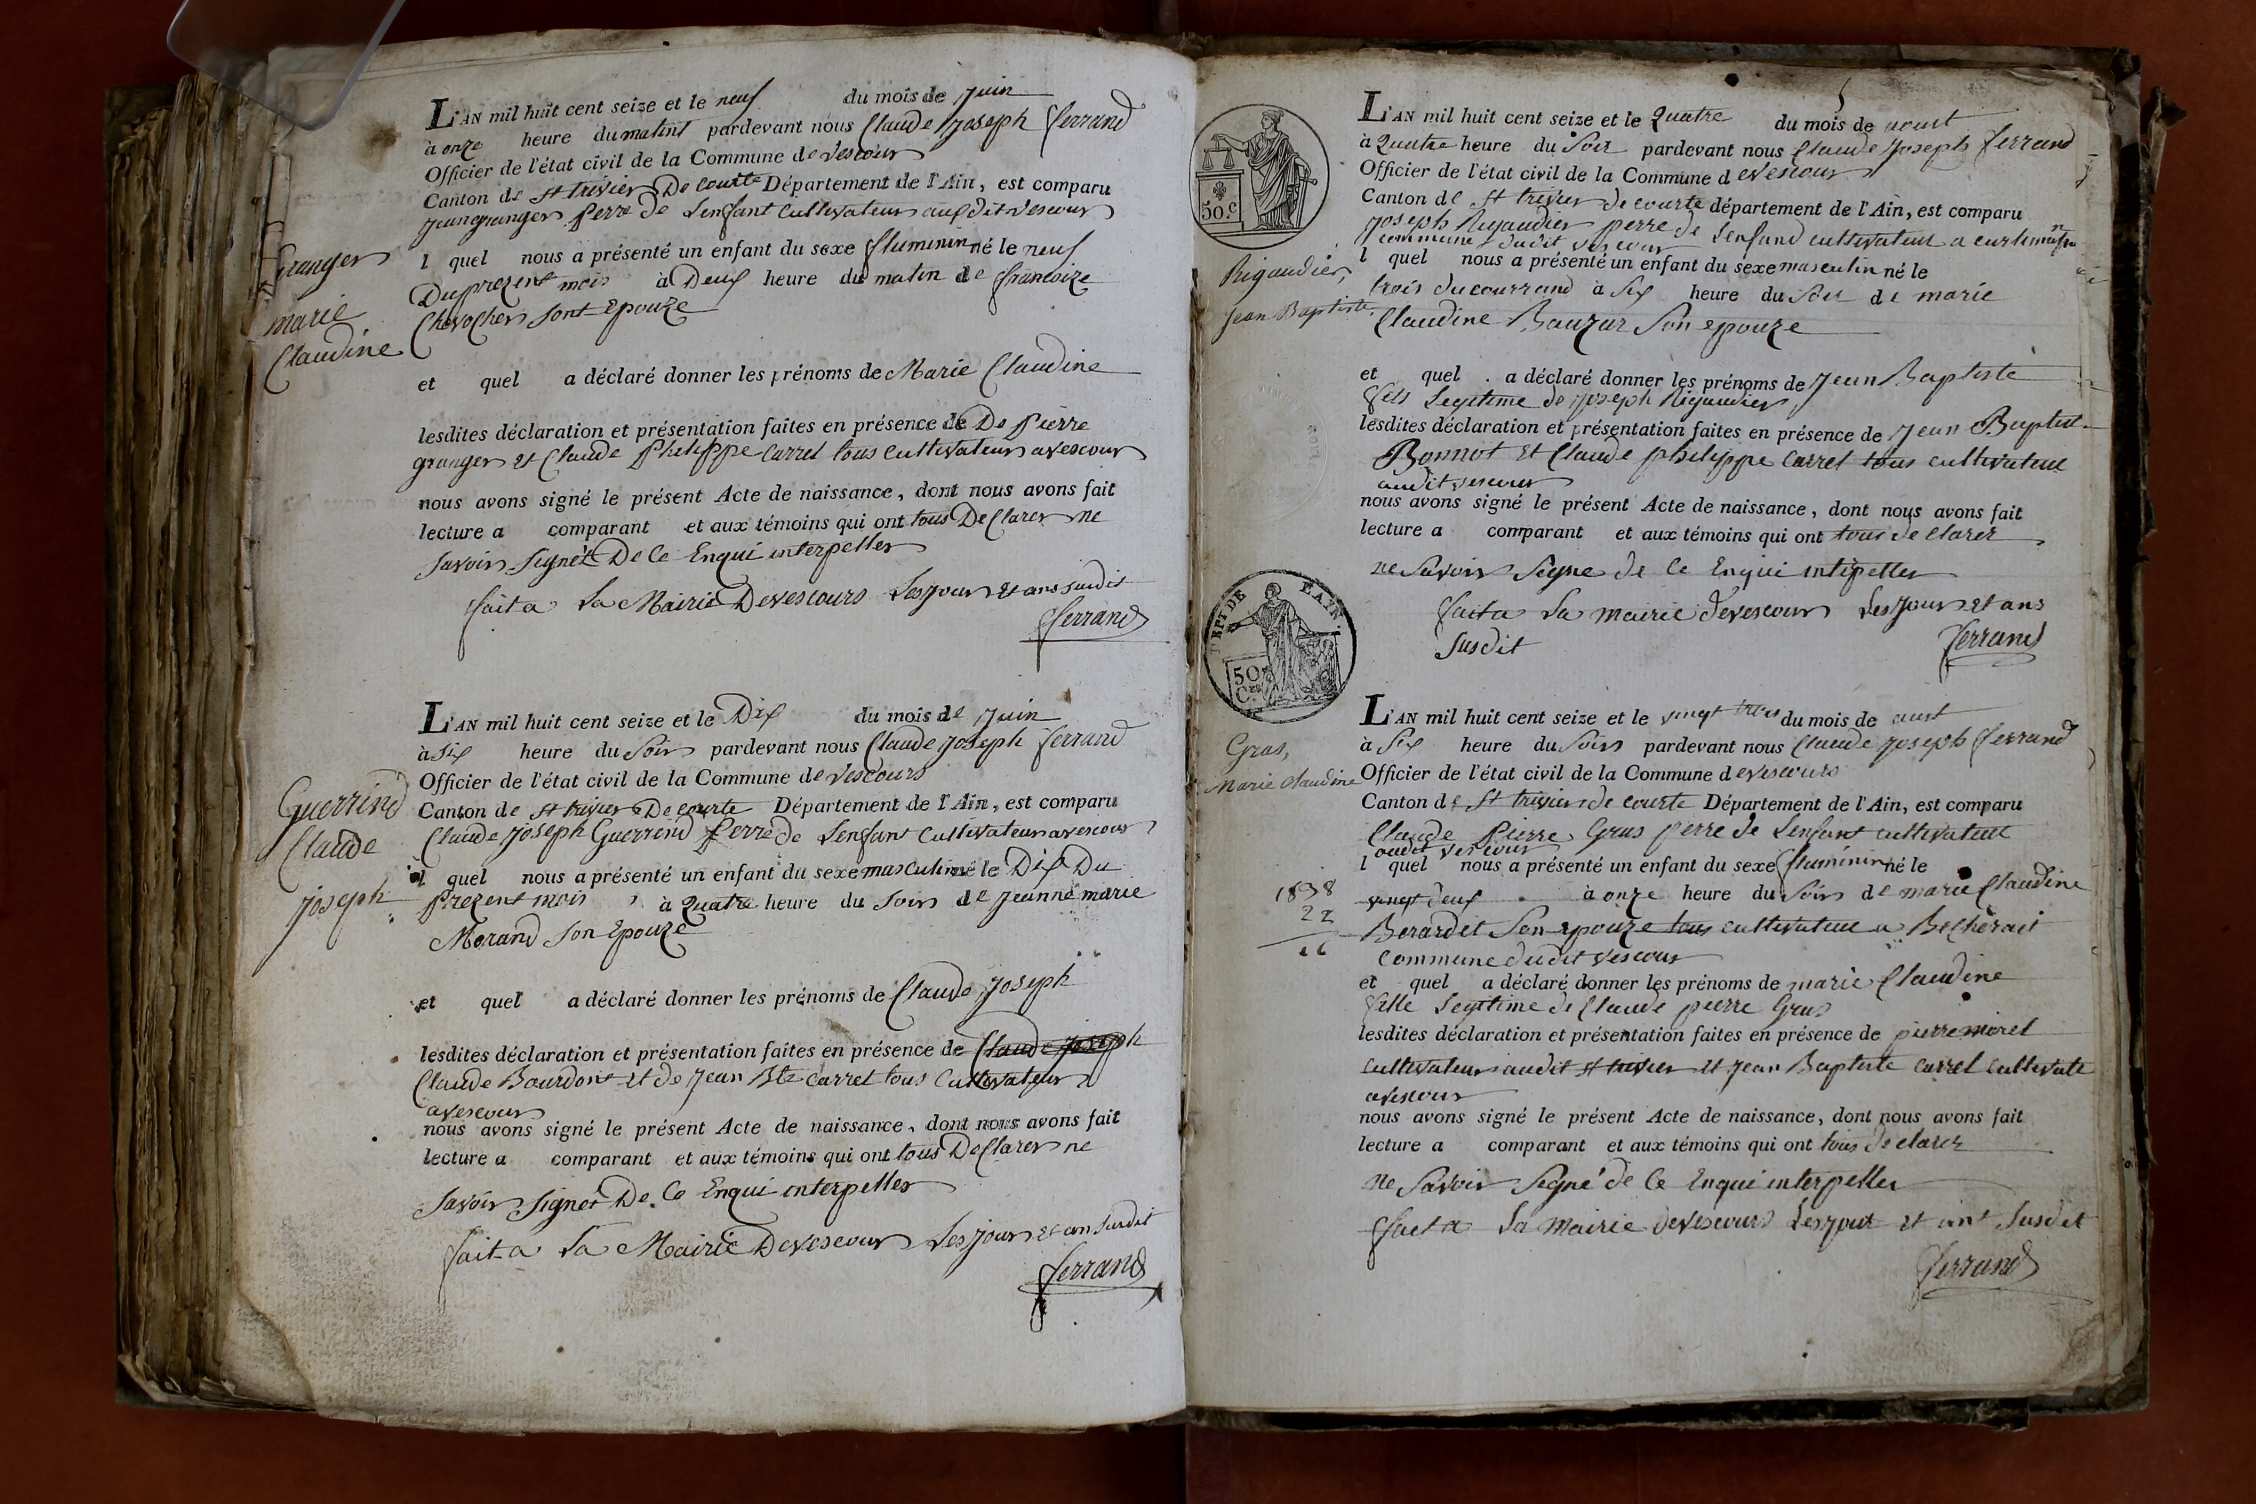 L'AN mil huit cent seize et le neuf du mois de Juin
à onze heure du matint pardevant nous Claude Joseph ferrand
Officier de l'état civil de la Commune de vescour
Canton de st trivier De courte Département de l'Ain, est comparu
jean granger perre de Lenfant cultivateur audit vescour
Granger
marie
Claudine
l quel nous a présenté un enfant du sexe fluminin né le neuf
Du prezent mois à Deux heure du matin de francoize
Chevocher sont Epouze
et quel a déclaré donner les prénoms de Marie Claudine
lesdites déclaration et présentation faites en présence de De Pierre
granger et Claude Philippe Carrel tous cultivateur avescour
nous avons signé le présent Acte de naissance, dont nous avons fait
lecture a comparant et aux témoins qui ont tous DeClarer ne
savoir signer De Ce Enqui interpeller
fait a La Mairie Devescours Lesjour et ans susdit
ferrand
L'AN mil huit cent seize et le Dix du mois de Juin
à six heure du soir pardevant nous Claude joseph ferrand
Officier de l'état civil de la Commune de vescours
Canton de st trivier De courte Département de l'Ain, est comparu
Claude joseph Guerrind perre de Lenfant Cultivateur avescour
Guerrind
Claude
joseph
l quel nous a présenté un enfant du sexe masculin né le Dix Du
prezent mois à Quatre heure du soir de jeanne marie
Morand son Epouze
et quel a déclaré donner les prénoms de Claude joseph
lesdites déclaration et présentation faites en présence de Claude joseph
Claude Bourdon et de jean Bte carrel tous Cultivateur
avescour
nous avons signé le présent Acte de naissance, dont nous avons fait
lecture a comparant et aux témoins qui ont tous DeClarer ne
savoir signer De Ce Enqui interpeller
fait a La Mairie Devescour Lesjour et an susdit
ferrand
L'AN mil huit cent seize et le Quatre du mois de aoust
à Quatre heure du Soir pardevant nous Claude joseph ferrand
Officier de l'état civil de la Commune d evescour
Canton de st trivier de courte département de l'Ain, est comparu
joseph Rigaudier perre de Lenfand cultivateur a
commune dudit vescour
50.C
Rigaudier,
Jean Baptiste
l quel nous a présenté un enfant du sexe masculin né le
trois du courrand à six heure du soir de marie
Claudine Bauzur Son epouze
et quel a déclaré donner les prénoms de jean Baptiste
fils Legitime de joseph Rigaudier
lesdites déclaration et présentation faites en présence de jean Baptist
Bonnot et Claude philippe carrel tous cultivateur
audit vescour
nous avons signé le présent Acte de naissance, dont nous avons fait
lecture a comparant et aux témoins qui ont tous de clarer
ne Savoir Signe de Ce Enqui interpeller
fait a La mairie devescour Lesjour et ans
susdit
ferrand
DEPT DE L'AIN.
50 Ces
L'AN mil huit cent seize et le vingt trois du mois de aust
à six heure du soir pardevant nous Claude joseph ferrand
Officier de l'état civil de la Commune d evescours
Canton de st trivier de courte Département de l'Ain, est comparu
Claude Pierre Gras perre de Lenfant cultivateur
audit vescour
Gras,
Marie claudine
l quel nous a présenté un enfant du sexe fluminin né le
vingt deux à onze heure du soir de marie Claudine
Berardet Son epouze tous cultivateur a Becherait
commune dudit vescour
1838
22
16
et quel a déclaré donner les prénoms de marie Claudine
fille Legitime de Claude pierre Gras
lesdites déclaration et présentation faites en présence de pierre morel
cultivateur audit st trivier et jean Baptiste carrel cultivate
avescour
nous avons signé le présent Acte de naissance, dont nous avons fait
lecture a comparant et aux témoins qui ont tous de clarer
ne Savoir Signé de Ce Enqui interpeller
fait a La mairie devescours Lesjour et ant susdit
ferrand